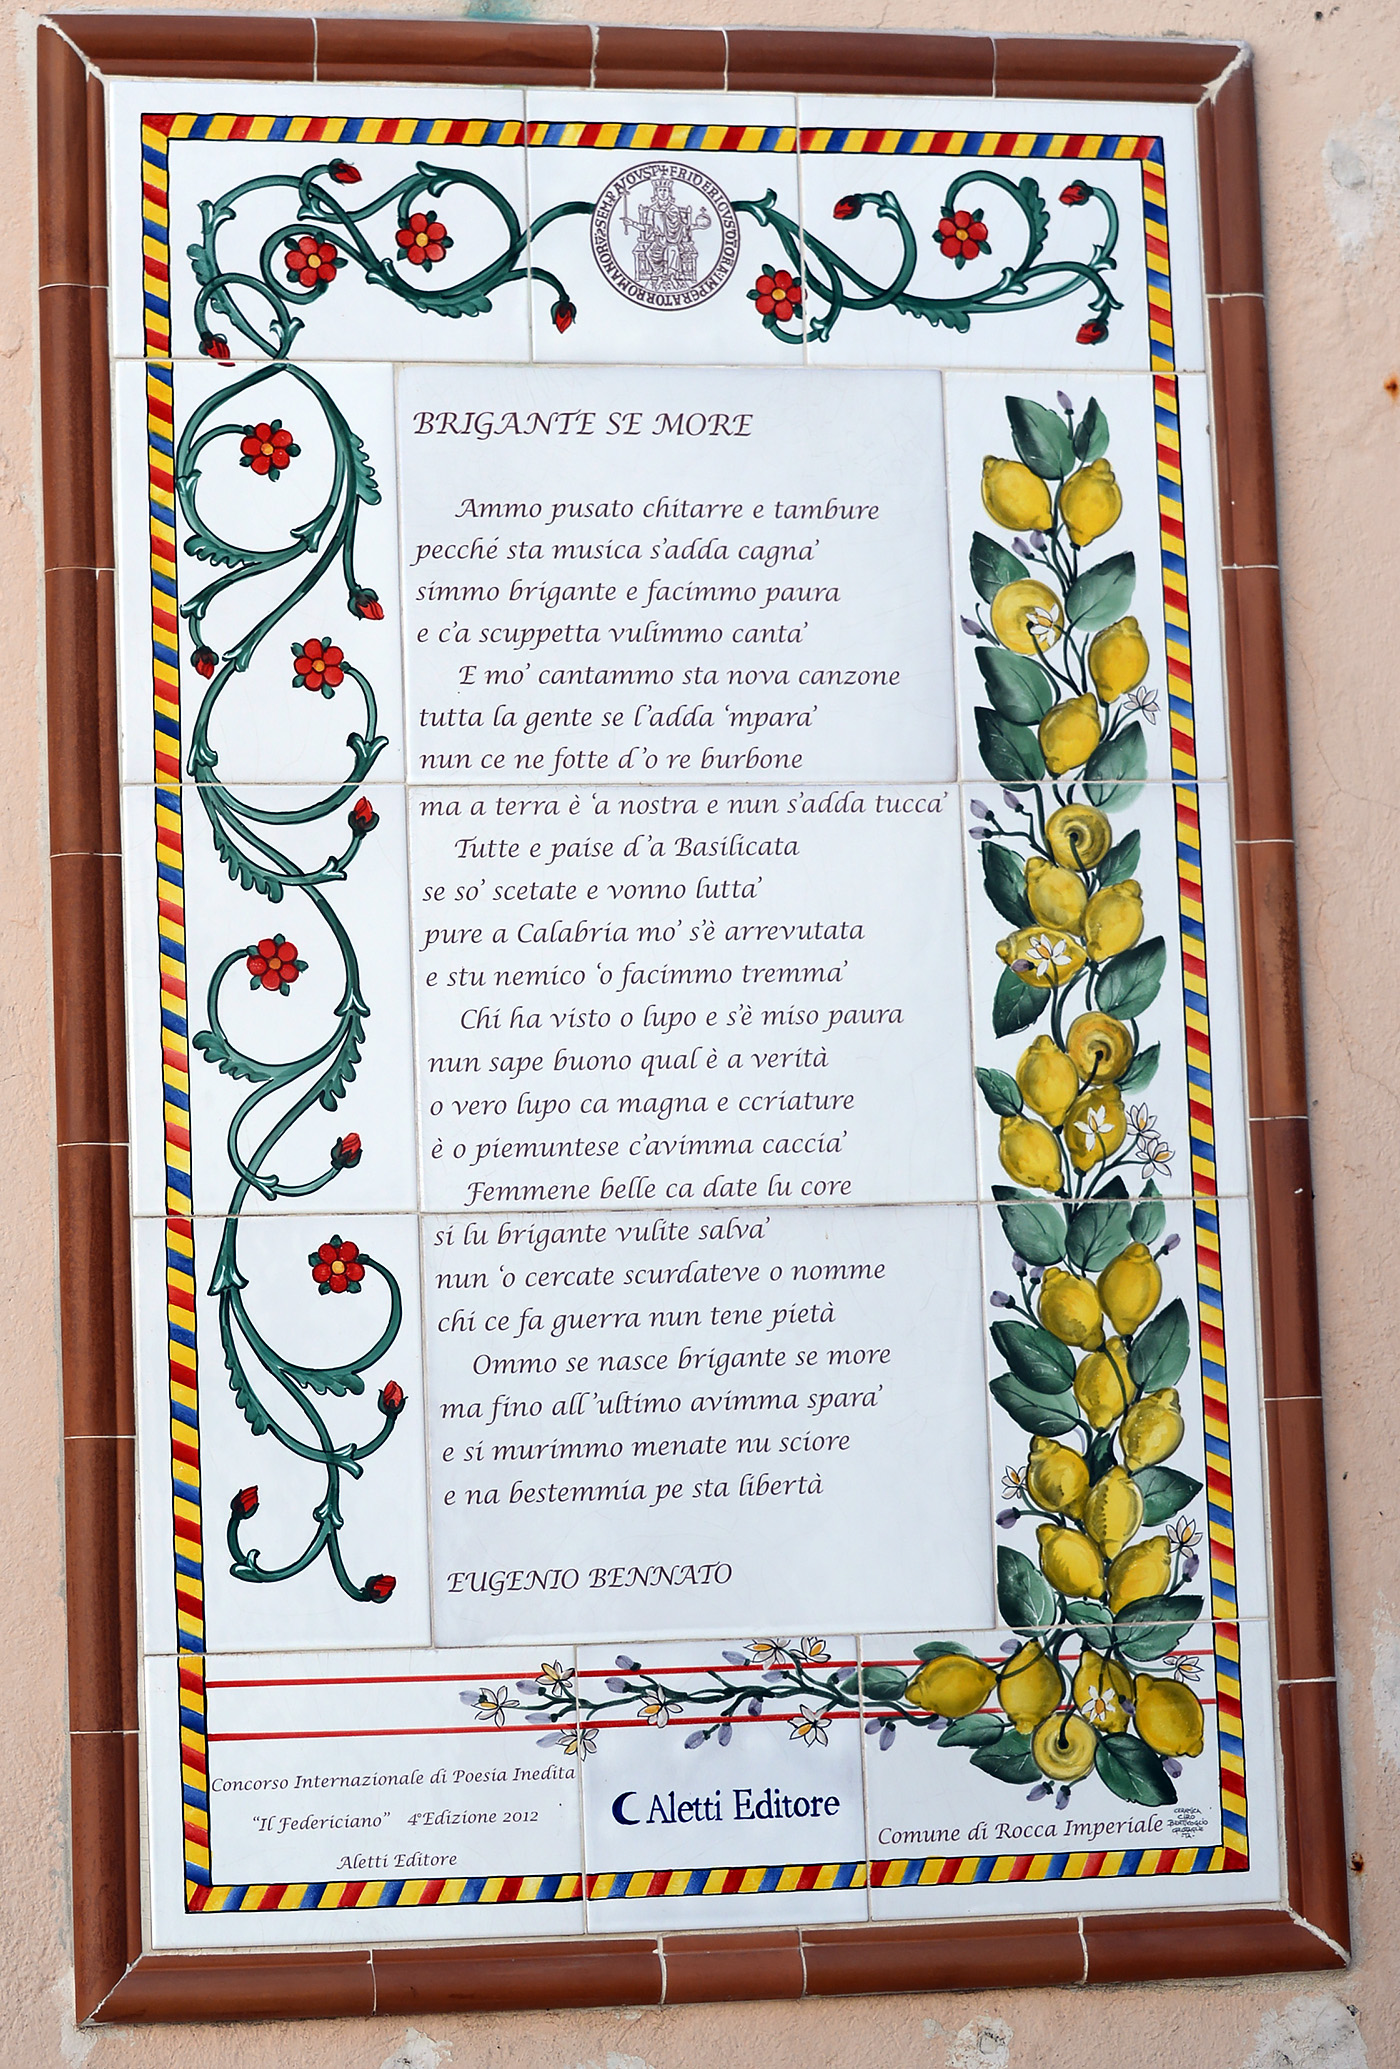 SEMP AUGUST + FRIDERICUS DI GRA IMPERATOR ROMANORU
BRIGANTE SE MORE
Ammo pusato chitarre e tambure
pecché sta musica s'adda cagna'
simmo brigante e facimmo paura
e c'a scuppetta vulimmo canta'
E mo' cantammo sta nova canzone
tutta la gente se l'adda 'mpara'
nun ce ne fotte d'o re burbone
ma a terra è 'a nostra e nun s'adda tucca'
Tutte e paise d'a Basilicata
se so' scetate e vonno lutta'
pure a Calabria mo' s'è arrevutata
e stu nemico 'o facimmo tremma'
Chi ha visto o lupo e s'è miso paura
nun sape buono qual è a verità
o vero lupo ca magna e ccriature
è o piemuntese c'avimma caccia'
Femmene belle ca date lu core
si lu brigante vulite salva'
nun 'o cercate scurdateve o nomme
chi ce fa guerra nun tene pietà
Ommo se nasce brigante se more
ma fino all'ultimo avimma spara'
e si murimmo menate nu sciore
e na bestemmia pe sta libertà
EUGENIO BENNATO
Concorso Internazionale di Poesia Inedita
"Il Federiciano" 4°Edizione 2012
Aletti Editore
Aletti Editore
Comune di Rocca Imperiale
CERAMICA
CIRO